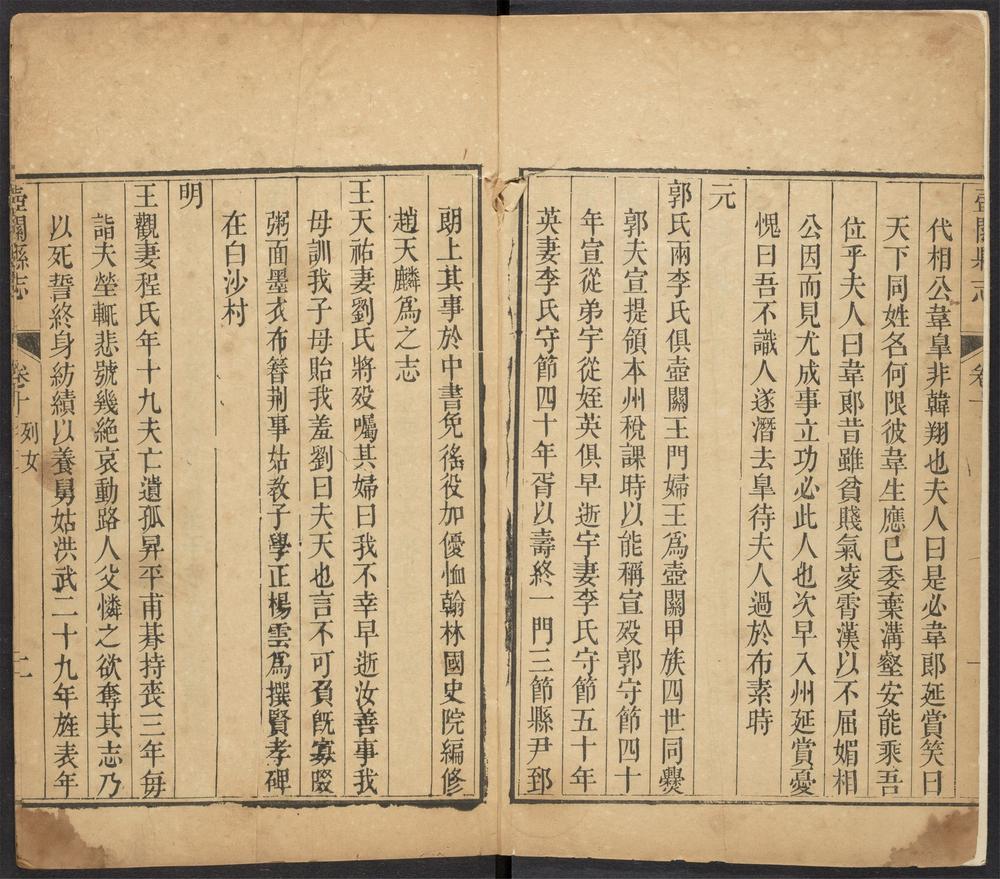 壺關縣志
卷十
代相公韋皐非韓翔也夫人曰是必韋郞延賞笑曰
天下同姓名何限彼韋生應已委棄溝壑安能乘吾
位乎夫人曰韋郞昔雖貧賤氣凌霄漢以不屈媚相
公因而見尤成事立功必此人也次早入州延賞憂
愧曰吾不識人遂潛去皐待夫人過於布素時
元
郭氏兩李氏俱壺關王門婦王爲壺關甲族四世同爨
郭夫宣提領本州稅課時以能稱宣歿郭守節四十
年宣從弟宇從姪英俱早逝宇妻李氏守節五十年
英妻李氏守節四十年胥以壽終一門三節縣尹郅
朗上其事於中書免徭役加優恤翰林國史院編修
趙天麟爲之志
王天祐妻劉氏將歿囑其婦曰我不幸早逝汝善事我
母訓我子母貽我羞劉曰夫天也言不可負旣寡啜
粥面墨衣布簪荆事姑教子學正楊雲爲撰賢孝碑
在白沙村
明
王觀妻程氏年十九夫亡遺孤昇平甫朞持喪三年每
詣夫塋輒悲號幾絶哀動路人父憐之欲奪其志乃
以死誓終身紡績以養舅姑洪武二十九年旌表年
壺關縣志
卷十 列女